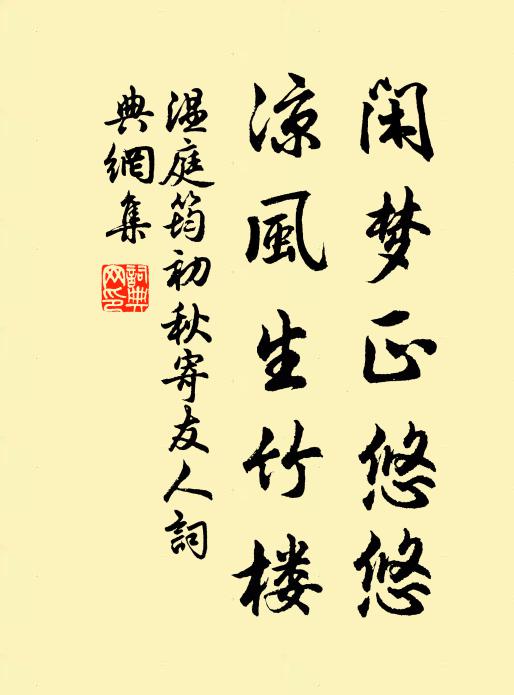 闲梦正悠悠
涼風生竹楼
温庭筠初秋寄友人詞
典網集
詞典
网印